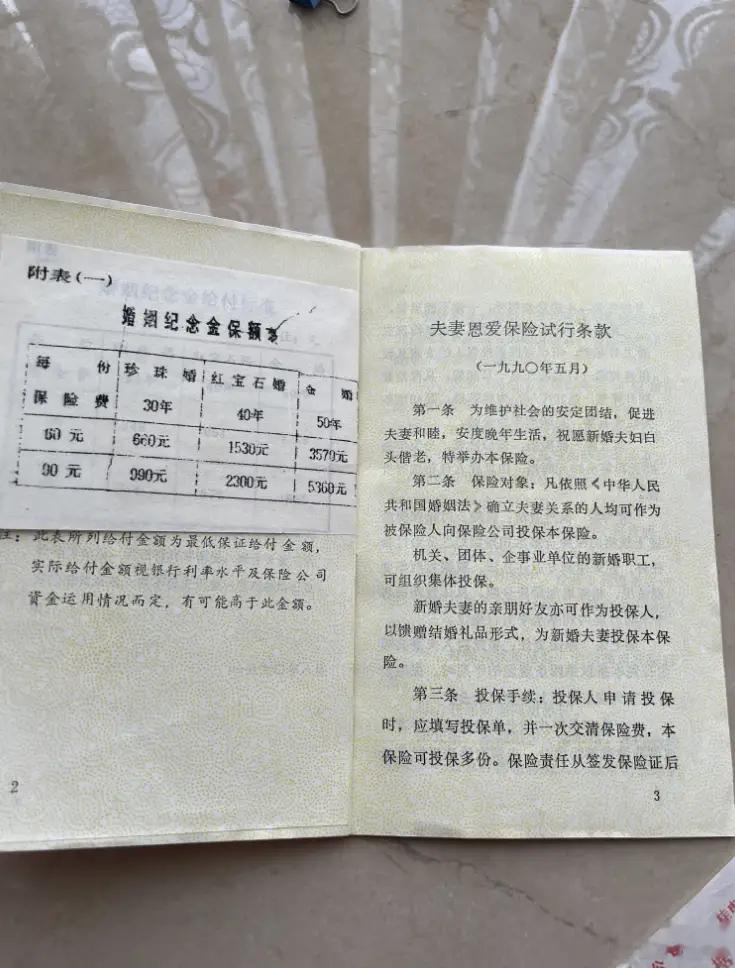 附表(一)
婚姻纪念金保额表
每 份 珍珠婚 红宝石婚 金 婚
保险费 30年 40年 50年
60元 660元 1530元 3570元
90元 990元 2300元 5360元
注：此表所列给付金额为最低保证给付金额，
实际给付金额视银行利率水平及保险公司
资金运用情况而定，有可能高于此金额。
2
夫妻恩爱保险试行条款
（一九九〇年五月）
第一条 为维护社会的安定团结，促进
夫妻和睦，安度晚年生活，祝愿新婚夫妇白
头偕老，特举办本保险。
第二条 保险对象：凡依照《中华人民
共和国婚姻法》确立夫妻关系的人均可作为
被保险人向保险公司投保本保险。
机关、团体、企事业单位的新婚职工，
可组织集体投保。
新婚夫妻的亲朋好友亦可作为投保人，
以馈赠结婚礼品形式，为新婚夫妻投保本保
险。
第三条 投保手续：投保人申请投保
时，应填写投保单，并一次交清保险费，本
保险可投保多份。保险责任从签发保险证后
3